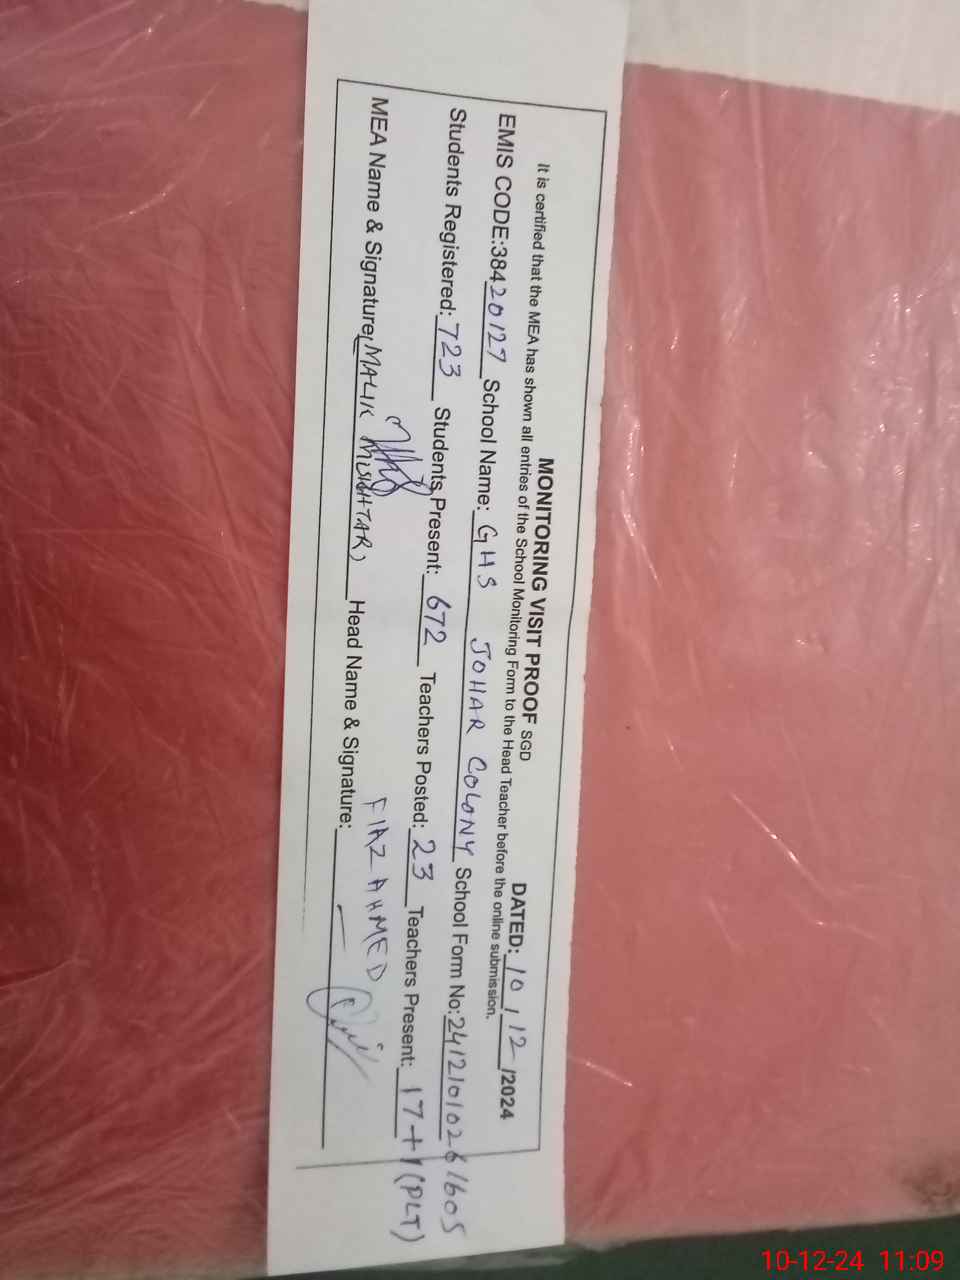 MONITORING VISIT PROOF SGD DATED: 10 / 12 /2024
It is certified that the MEA has shown all entries of the School Monitoring Form to the Head Teacher before the online submission.
EMIS CODE:38420127 School Name: GHS JOHAR COLONY School Form No:24121010261605
Students Registered: 723 Students Present: 672 Teachers Posted: 23 Teachers Present: 17+1(PLT)
MEA Name & Signature(MALIK MUKHTAR) Head Name & Signature: FIAZ AHMED
10-12-24 11:09